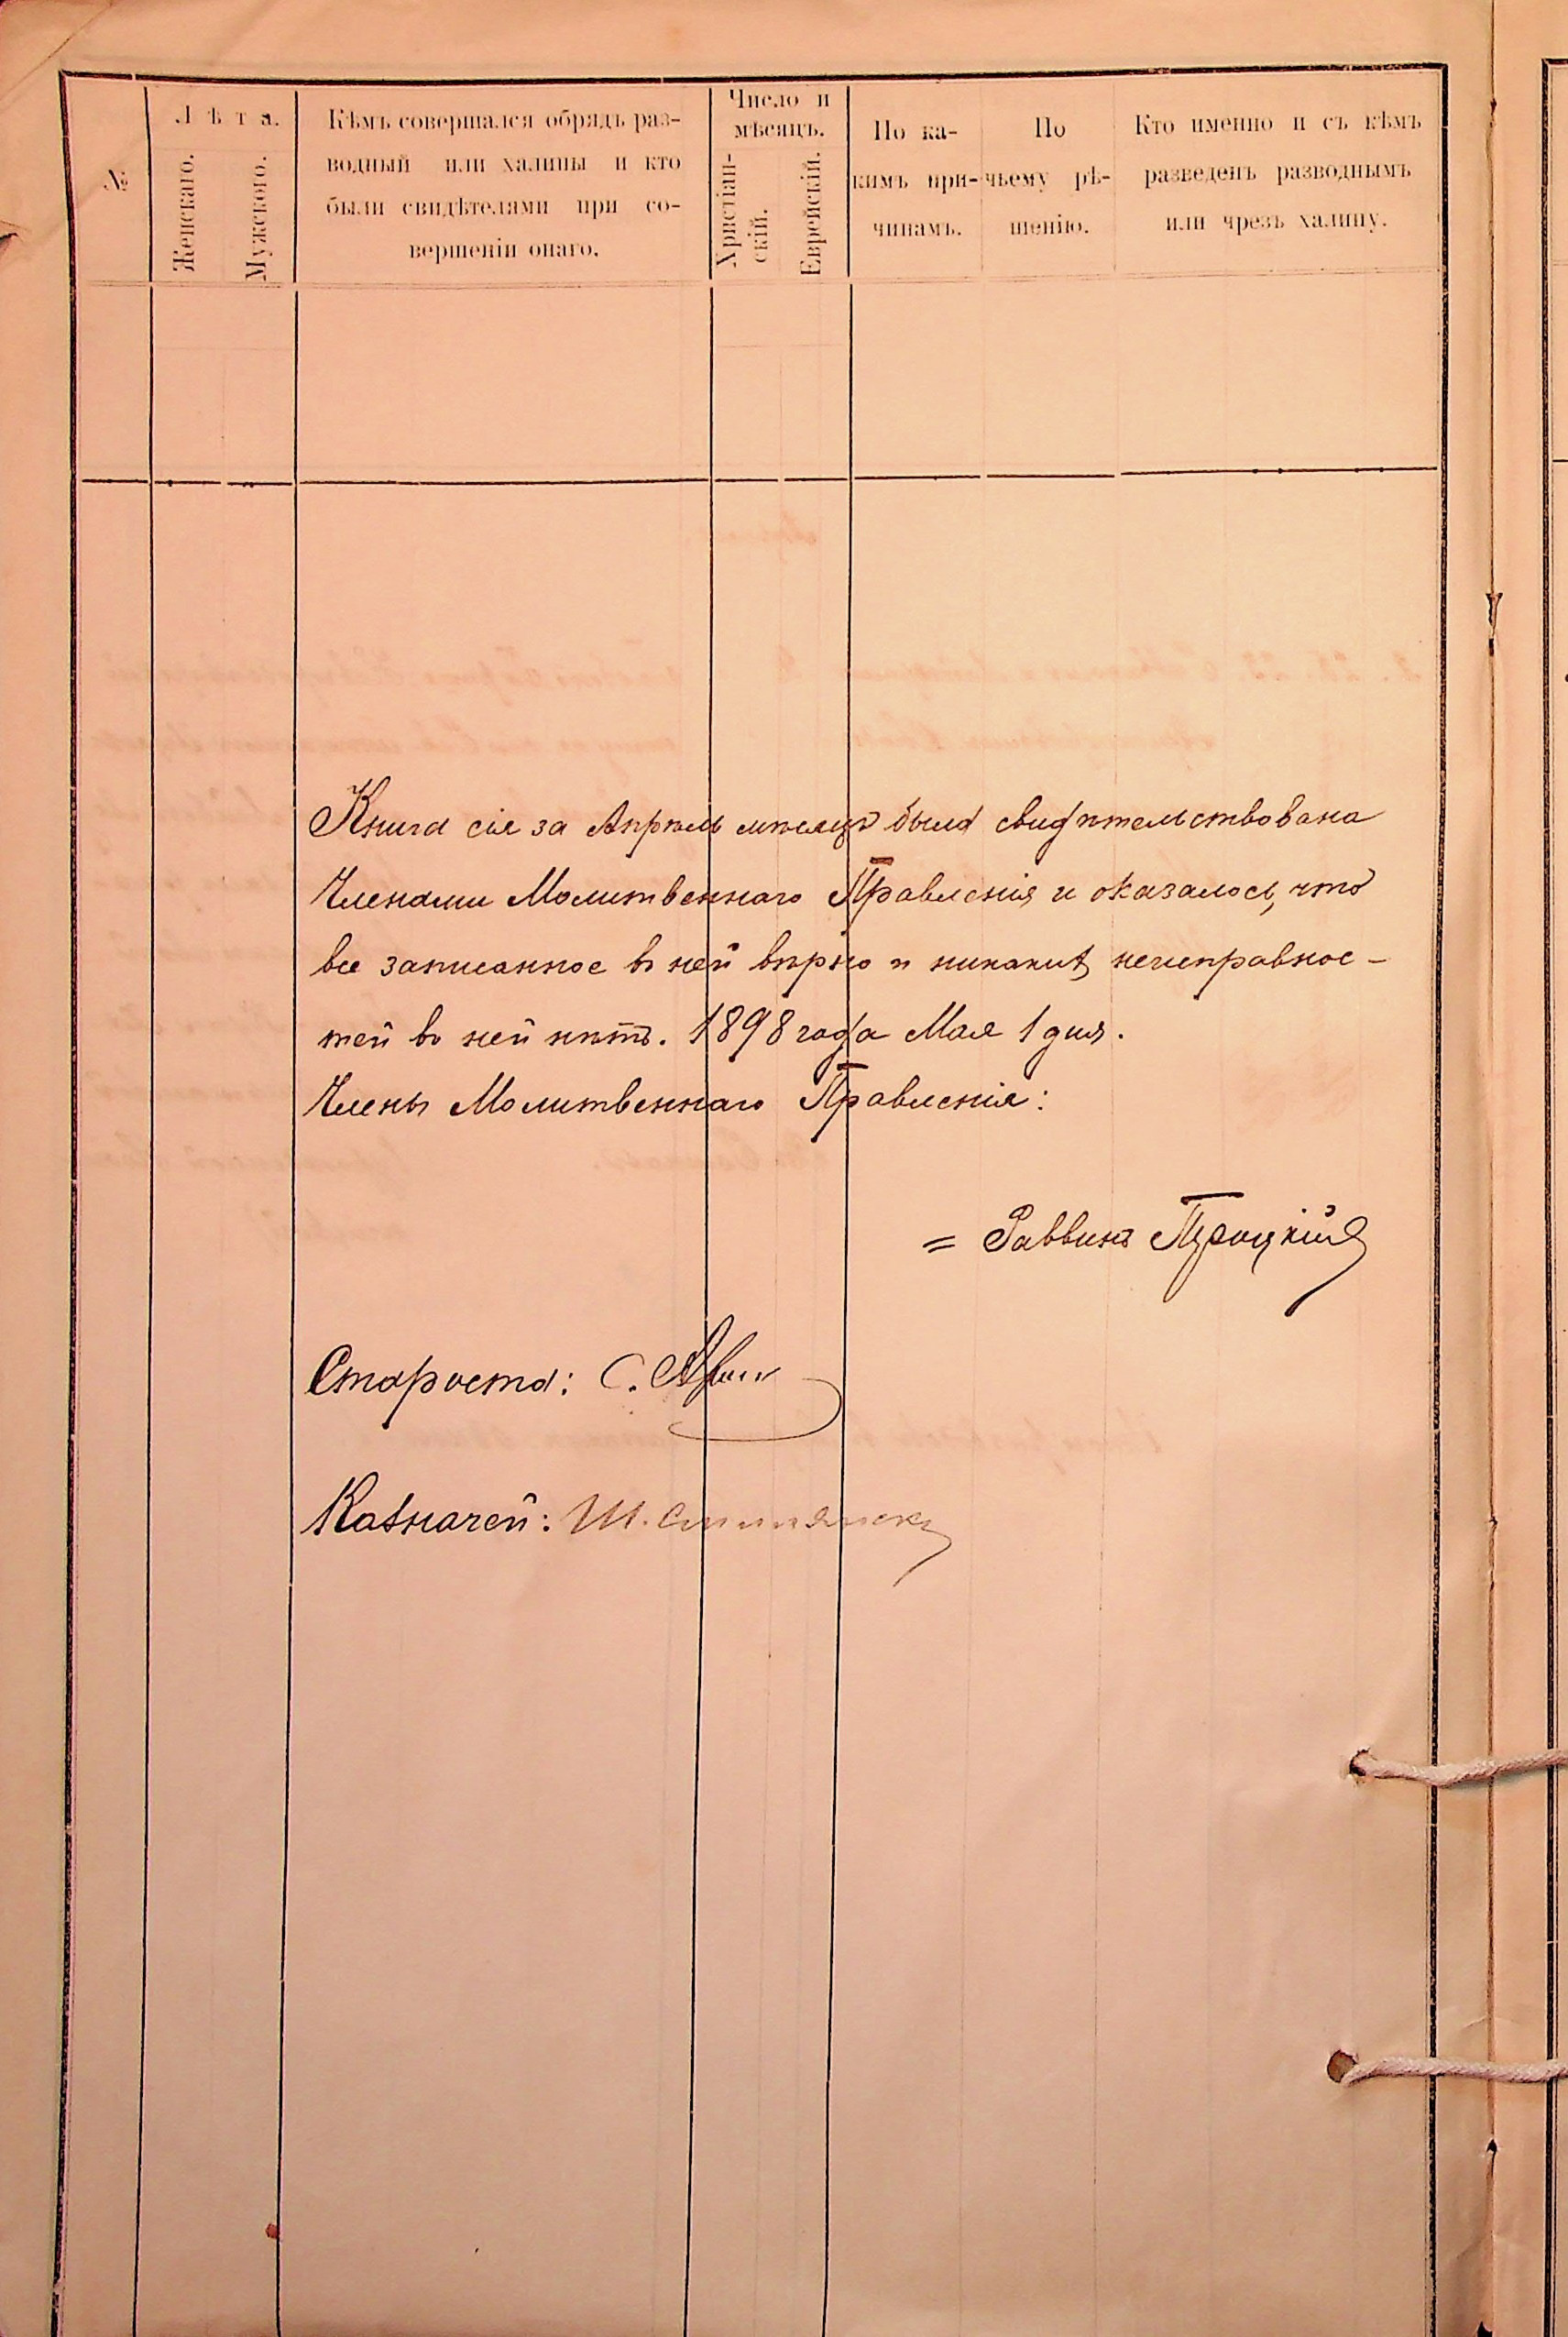 №
Лѣта.
Женскаго.
Мужского.
Кѣмъ совершался обрядъ раз-
водный или халицы и кто
были свидѣтелями при со-
вершеніи онаго.
Число и
мѣсяцъ.
Христіан-
скій.
Еврейскій.
По ка-
кимъ при-
чинамъ.
По
чьему рѣ-
шенію.
Кто именно и съ кѣмъ
разведенъ разводнымъ
или чрезъ халицу.
Книга сія за Апрѣль мѣсяцъ была свидѣтельствована
Членами Молитвеннаго Правленія и оказалось, что
все записанное въ ней вѣрно и никакихъ неисправнос-
тей въ ней нѣтъ. 1898 года Мая 1 дня.
Члены Молитвеннаго Правленія:
= Раввинъ
Староста: С.
Казначей: Ш.